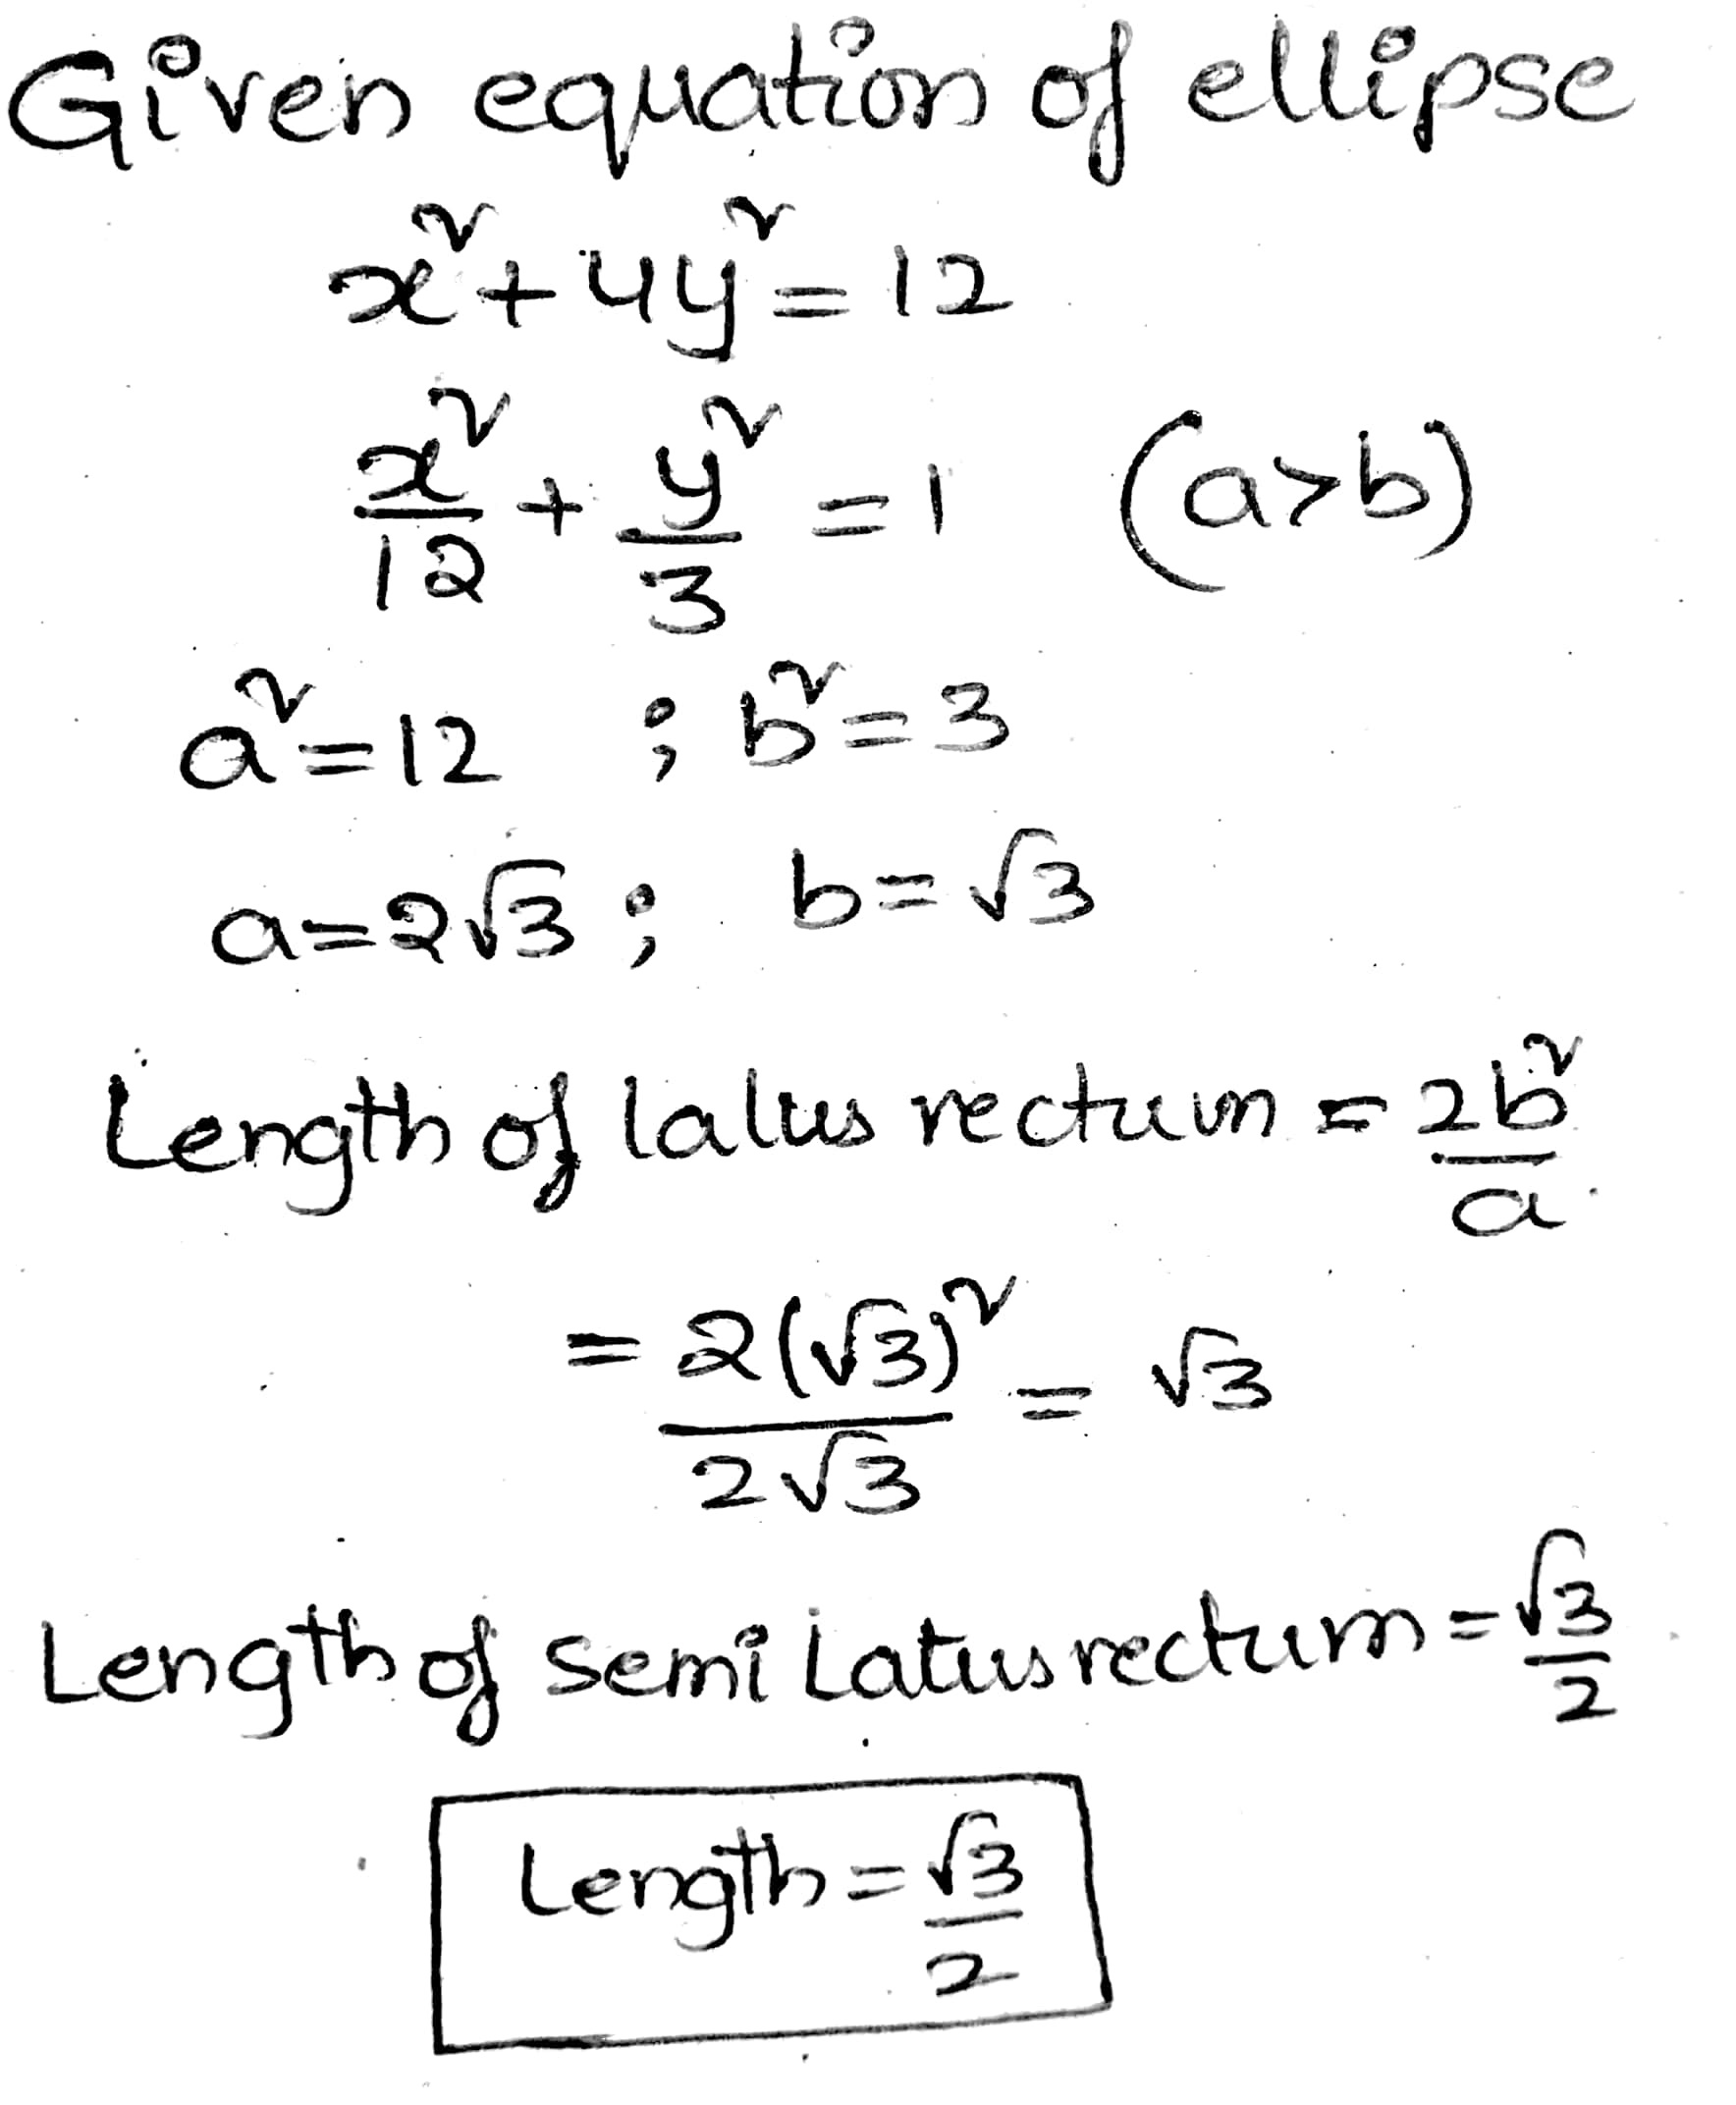 Given equation of ellipse
x² + 4y² = 12
x²/12 + y²/3 = 1 (a>b)
a² = 12 ; b² = 3
a = 2√3 ; b = √3
Length of lalus rectum = 2b²/a
= 2(√3)²/2√3 = √3
Length of semi Latusrectum = √3/2
Length = √3/2